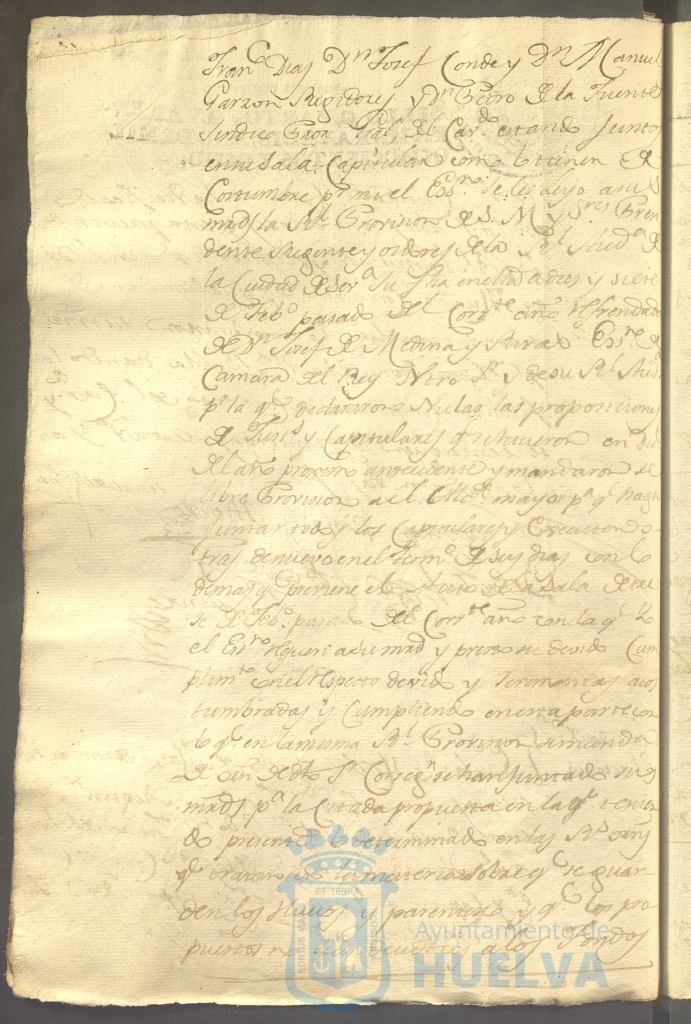 Fran.co Dias Dn Josef Conde y Dn Manuel
Garzon Regidores y Dn Pedro de la Fuente
Sindico Pror Gral del Cav.do estando Juntos
en su sala Capitular como lo tienen de
Costumbre pr mi el Ess.no se les leyo a sus
mrds la Rl Provision de S. M. y Sres Presi
dente Regente y oidores de la Rl Aud.a de
la Ciudad de Sev.a su fha en ella a dies y siete
de Feb.o pasado del Corr.te año refrendada
de Dn Josef de Medina y Ess.no de
Camara del Rey Ntro Sr y de su Rl Aud.a
pr la q.e declararon Nulas las proposiciones
de Just.a y Capitulares q.e se hicieron en Dic.e
del año proximo antecedente y mandaron se
libre Provision a el Alld.e mayor pa q.e haga
Juntar todos los Capitulares y Executen o
tras de nuevo en el term.o de seis dias con lo
demas q.e previene el Auto de la Sala de
se de Feb.o pasado del Corr.te año con la q.e Yo
el Ess.no requeri a su mrd y presto su devido Cum
plim.to con el respecto devido y seremonias acos
tumbradas y Cumpliendo en esta parte con
lo q.e en la misma Rl Provision se manda
de orn de dho Sr Correg.r se han Juntado sus
mrds pa la Citada propuesta en la q.e tenien
do presente lo determinado en las Rs orns
q.e tratan de la materia sobre q.e se guar
den los Huecos y parentesco y q.e los pro
puestos no sean deudores a los Fondos
ET TERRÆ
PORTUS MARIS
CUSTODIA
Ayuntamiento de
HUELVA